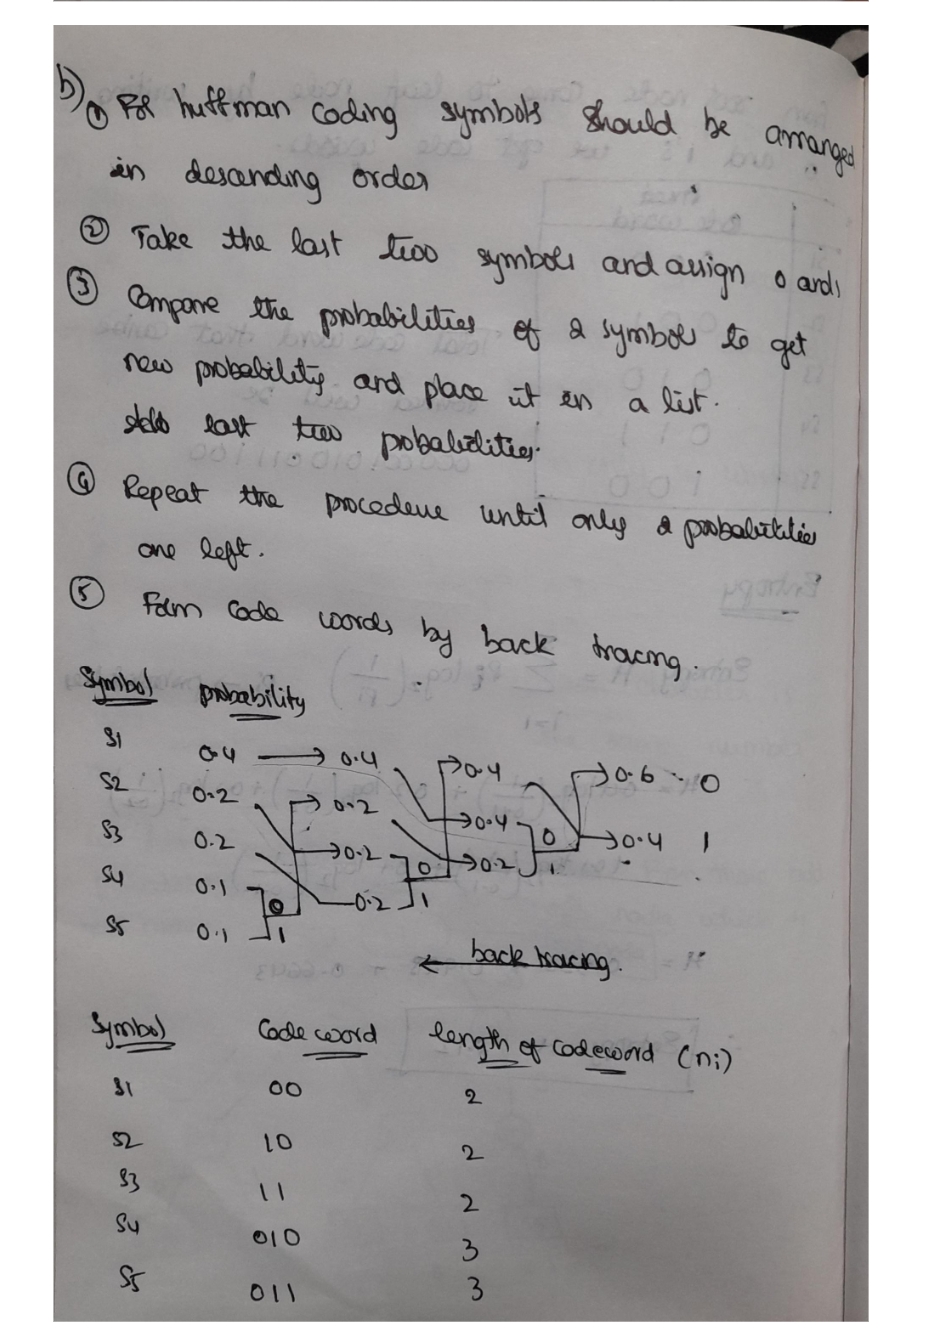 b)
① For huffman coding symbols should be arranged
in desanding order
② Take the last two symbols and assign 0 and 1
③ Compare the probabilities of 2 symbols to get
new probability and place it in a list.
Add last two probabilities.
④ Repeat the procedeue until only 2 probabilities
are left.
⑤ Form Code words by back tracing.
Symbol probability
S1 0.4 → 0.4 0.4 0.6 0
S2 0.2 0.2 0.4 0 0.4 1
S3 0.2 0.2 0 0.2 1
S4 0.1 0 0.2 1
S5 0.1 1
← back tracing.
Symbol Code word length of codeword (ni)
S1 00 2
S2 10 2
S3 11 2
S4 010 3
S5 011 3